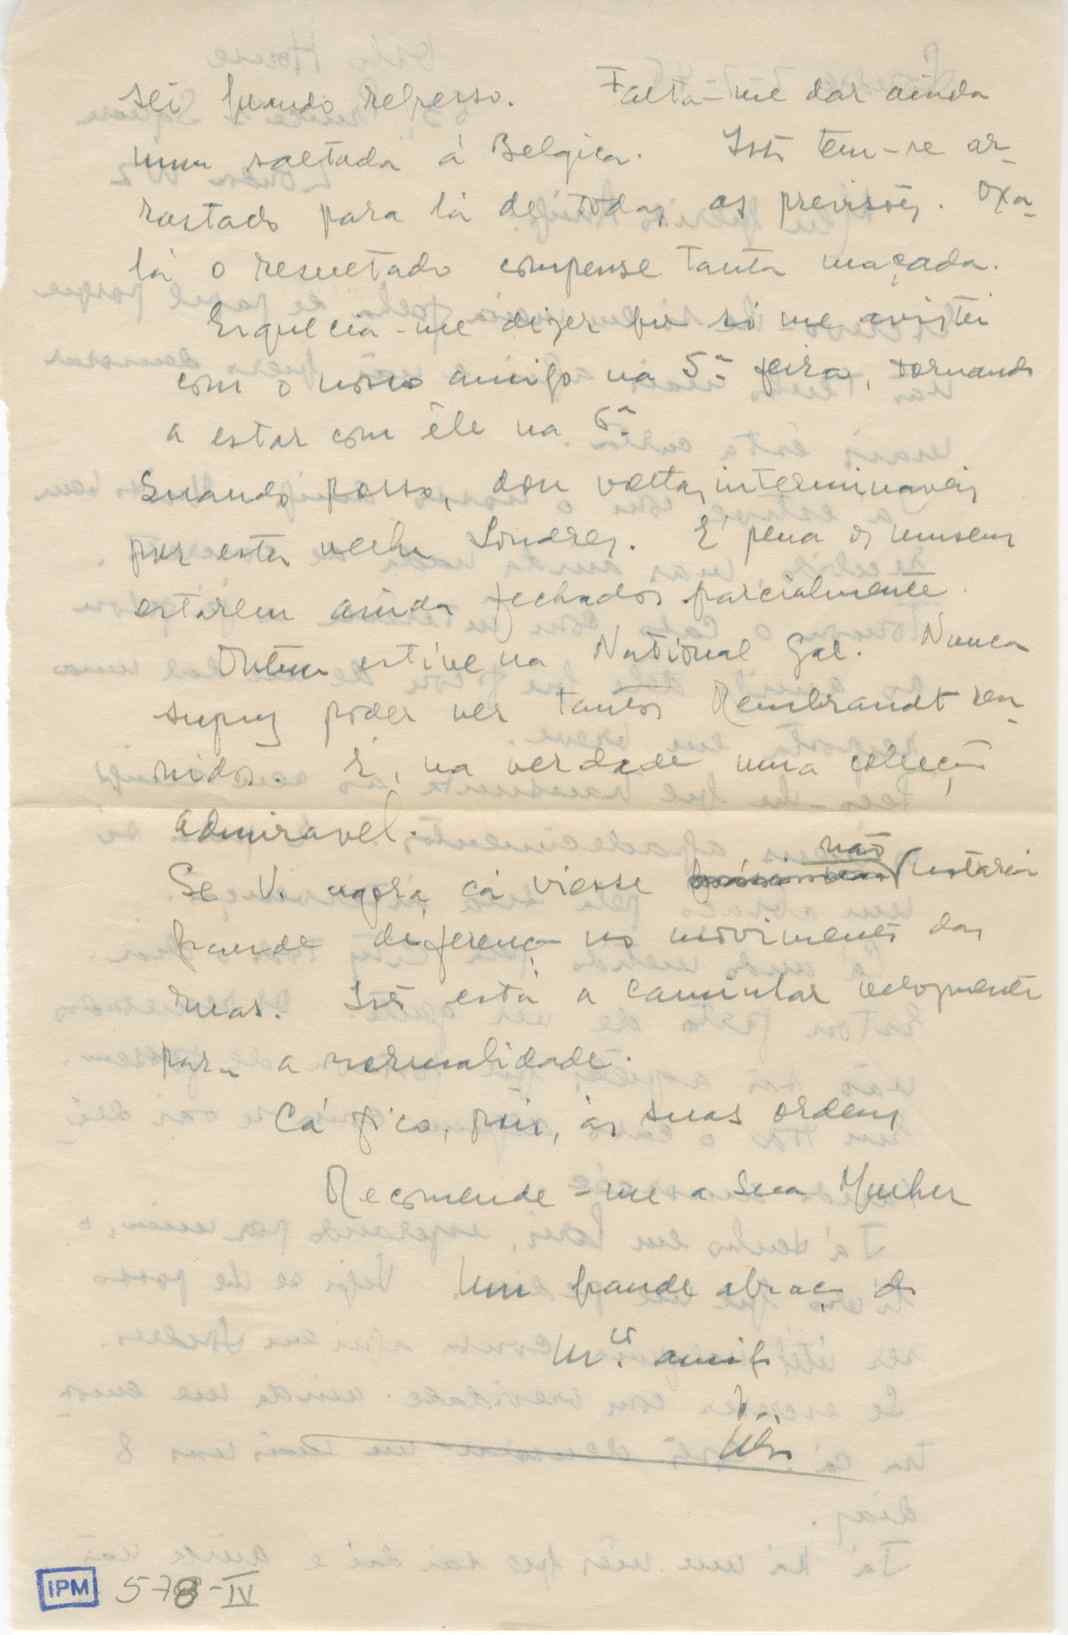 sei quando regresso. Falta-me dar ainda
uma saltada á Belgica. Isto tem-se ar-
rastado para lá de todas as previsões. Oxa-
lá o resultado compense tanta maçada.
Esquecia-me dizer que só me avistei
com o nosso amigo na 5ª feira, tornando
a estar com êle na 6ª
Quando posso, dou voltas interminaveis
por esta velha Londres. É pena os museus
estarem ainda fechados parcialmente.
Ontem estive na National Gal. Nunca
supuz poder ver tantos Rembrandt reu-
nidos. É, na verdade uma coleção
admiravel.
Se V. agora cá viesse não notaria
grande diferença no movimento das
ruas. Isto está a caminhar velozmente
para a normalidade.
Cá fico, pois, ás suas ordens
Recomende-me a Sua Mulher
Um grande abraço do
mto. amigo
IPM 578-IV